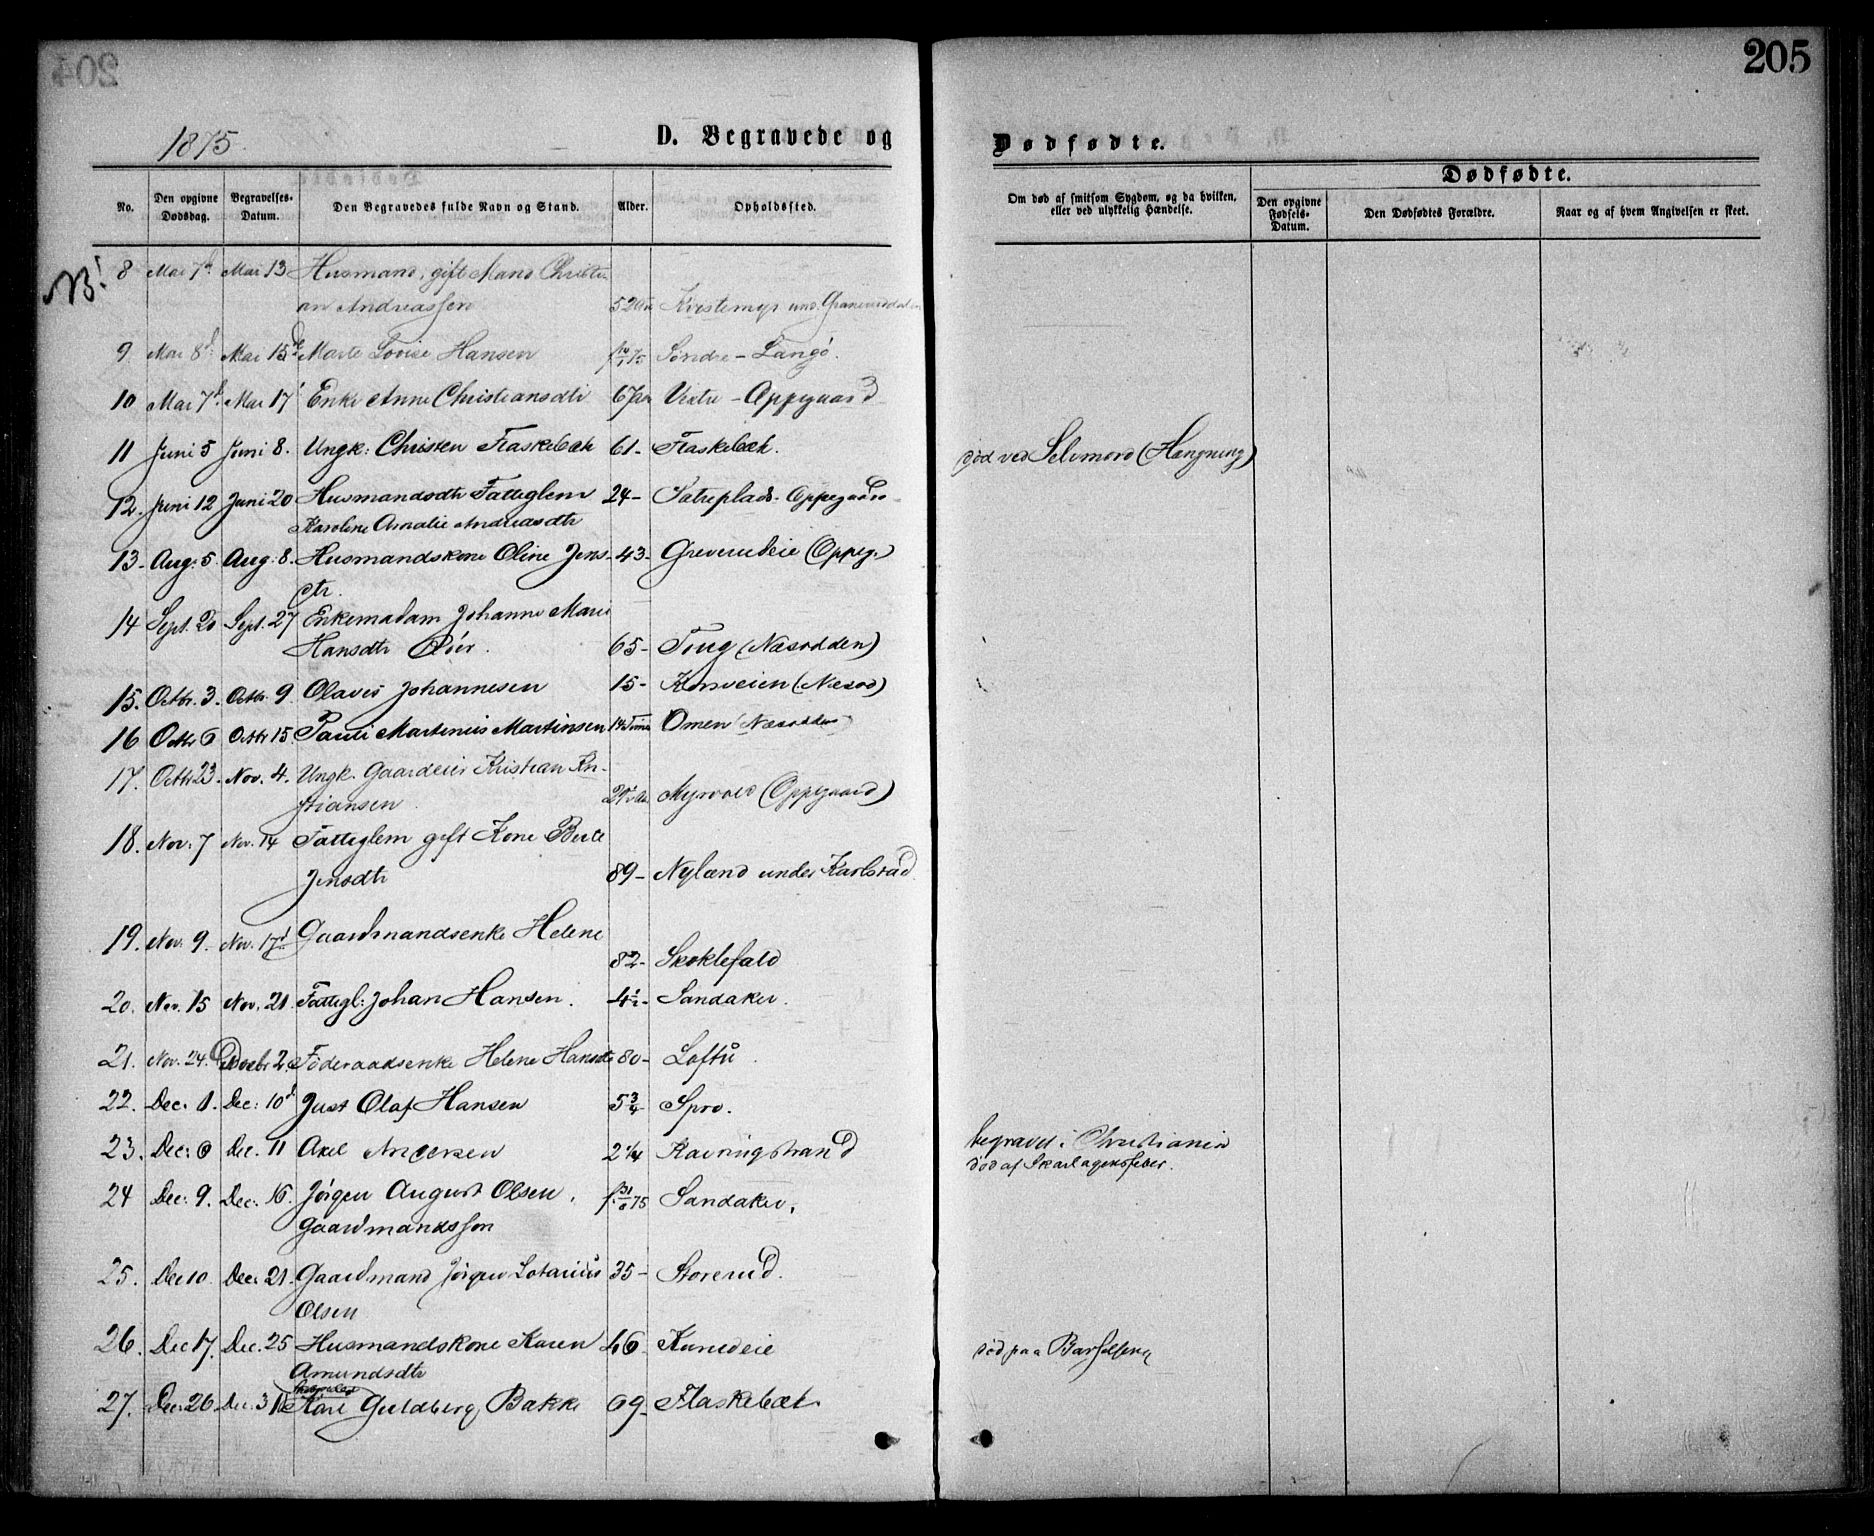 204
205
1875.
D. Begravede og
Dødfødte.
Dødfødte.
No.
Den opgivne Dødsdag.
Begravelses-Datum.
Den Begravedes fulde Navn og Stand.
Alder.
Opholdsfted.
Om død af smitsom Sygdom, og da hvilken, eller ved ulykkelig Hændelse.
Den opgivne Fødsels-Datum.
Den Dødfødtes Forældre.
Naar og af hvem Angivelsen er skeet.
NB!
8 Mai 7d Mai 13 Husmand, gift Mand Christi
an Andreassen 52 Kvistemyr und.
9. Mai 8d. Mai 15de Marte Lovise Hansen Søndre - Langø.
10 Mai 7d. Mai 17 Enke Anne Christiansdtr 67 Vestre - Oppegaard
11 Juni 5 Juni 8. Ungk: Christen Flaskebæk 61- Flaskebæk. død ved Selvmord (Hængning)
12. Juni 12 Juni 20 Husmandsdtr Fattiglem 24- Sætreplads-
Karoline Amalie Andreasdtr
13. Aug: 5. Aug: 8. Husmandskone Oline Jens- 43- Greverudeie (Oppeg.)
dtr.
14 Sept. 20 Sept. 27 Enkemadam Johanne Marie
Hansdtr 65- (Næsodden)
15. Octbr. 3. Octbr. 9. Olaves Johannesen 15- (Næsod)
16 Octbr 6 Octbr 15. Pauli Martinius Martinsen 14 Timer Omen (Næsodden)
17. Octbr 23. Nov. 4. Ungk. Gaardeier Kristian Kri-
stiansen. Myrvold (Oppegaard)
18. Nov. 7 Nov. 14 Fattiglem gift Kone Berte
Jensdtr 89- Nyland under Karlsrud.
19. Nov. 9. Nov. 17d Gaardmandsenke Helene
82- Skoklefald
20. Nov. 15 Nov. 21. Fattigl: Johan Hansen. 4½- Sandaker.
21. Nov. 24. Decbr 2. Föderaadsenke Helene Hansdtr 80- Loftu.
22. Dec. 1. Dec: 10d Just Olaf Hansen 5¾ Spro.
23. Dec: 6 Dec. 11 Axel Andersen 2¼ Ravnigstrand begravet i Christiania
død af Skarlagensfeber.
24 Dec: 9. Dec. 16. Jørgen August Olsen, Sandaker.
Gaardmandssøn
25. Dec 10. Dec. 21. Gaardmand Jørgen Lotarius 35- Storerud.
Olsen
26. Dec 17. Dec. 25 Husmandskone Karen 46 død paa Barselseng
Amundsdtr
27. Dec: 26. Dec. 31 Guldberg Bakke 69- Flaskebæk.